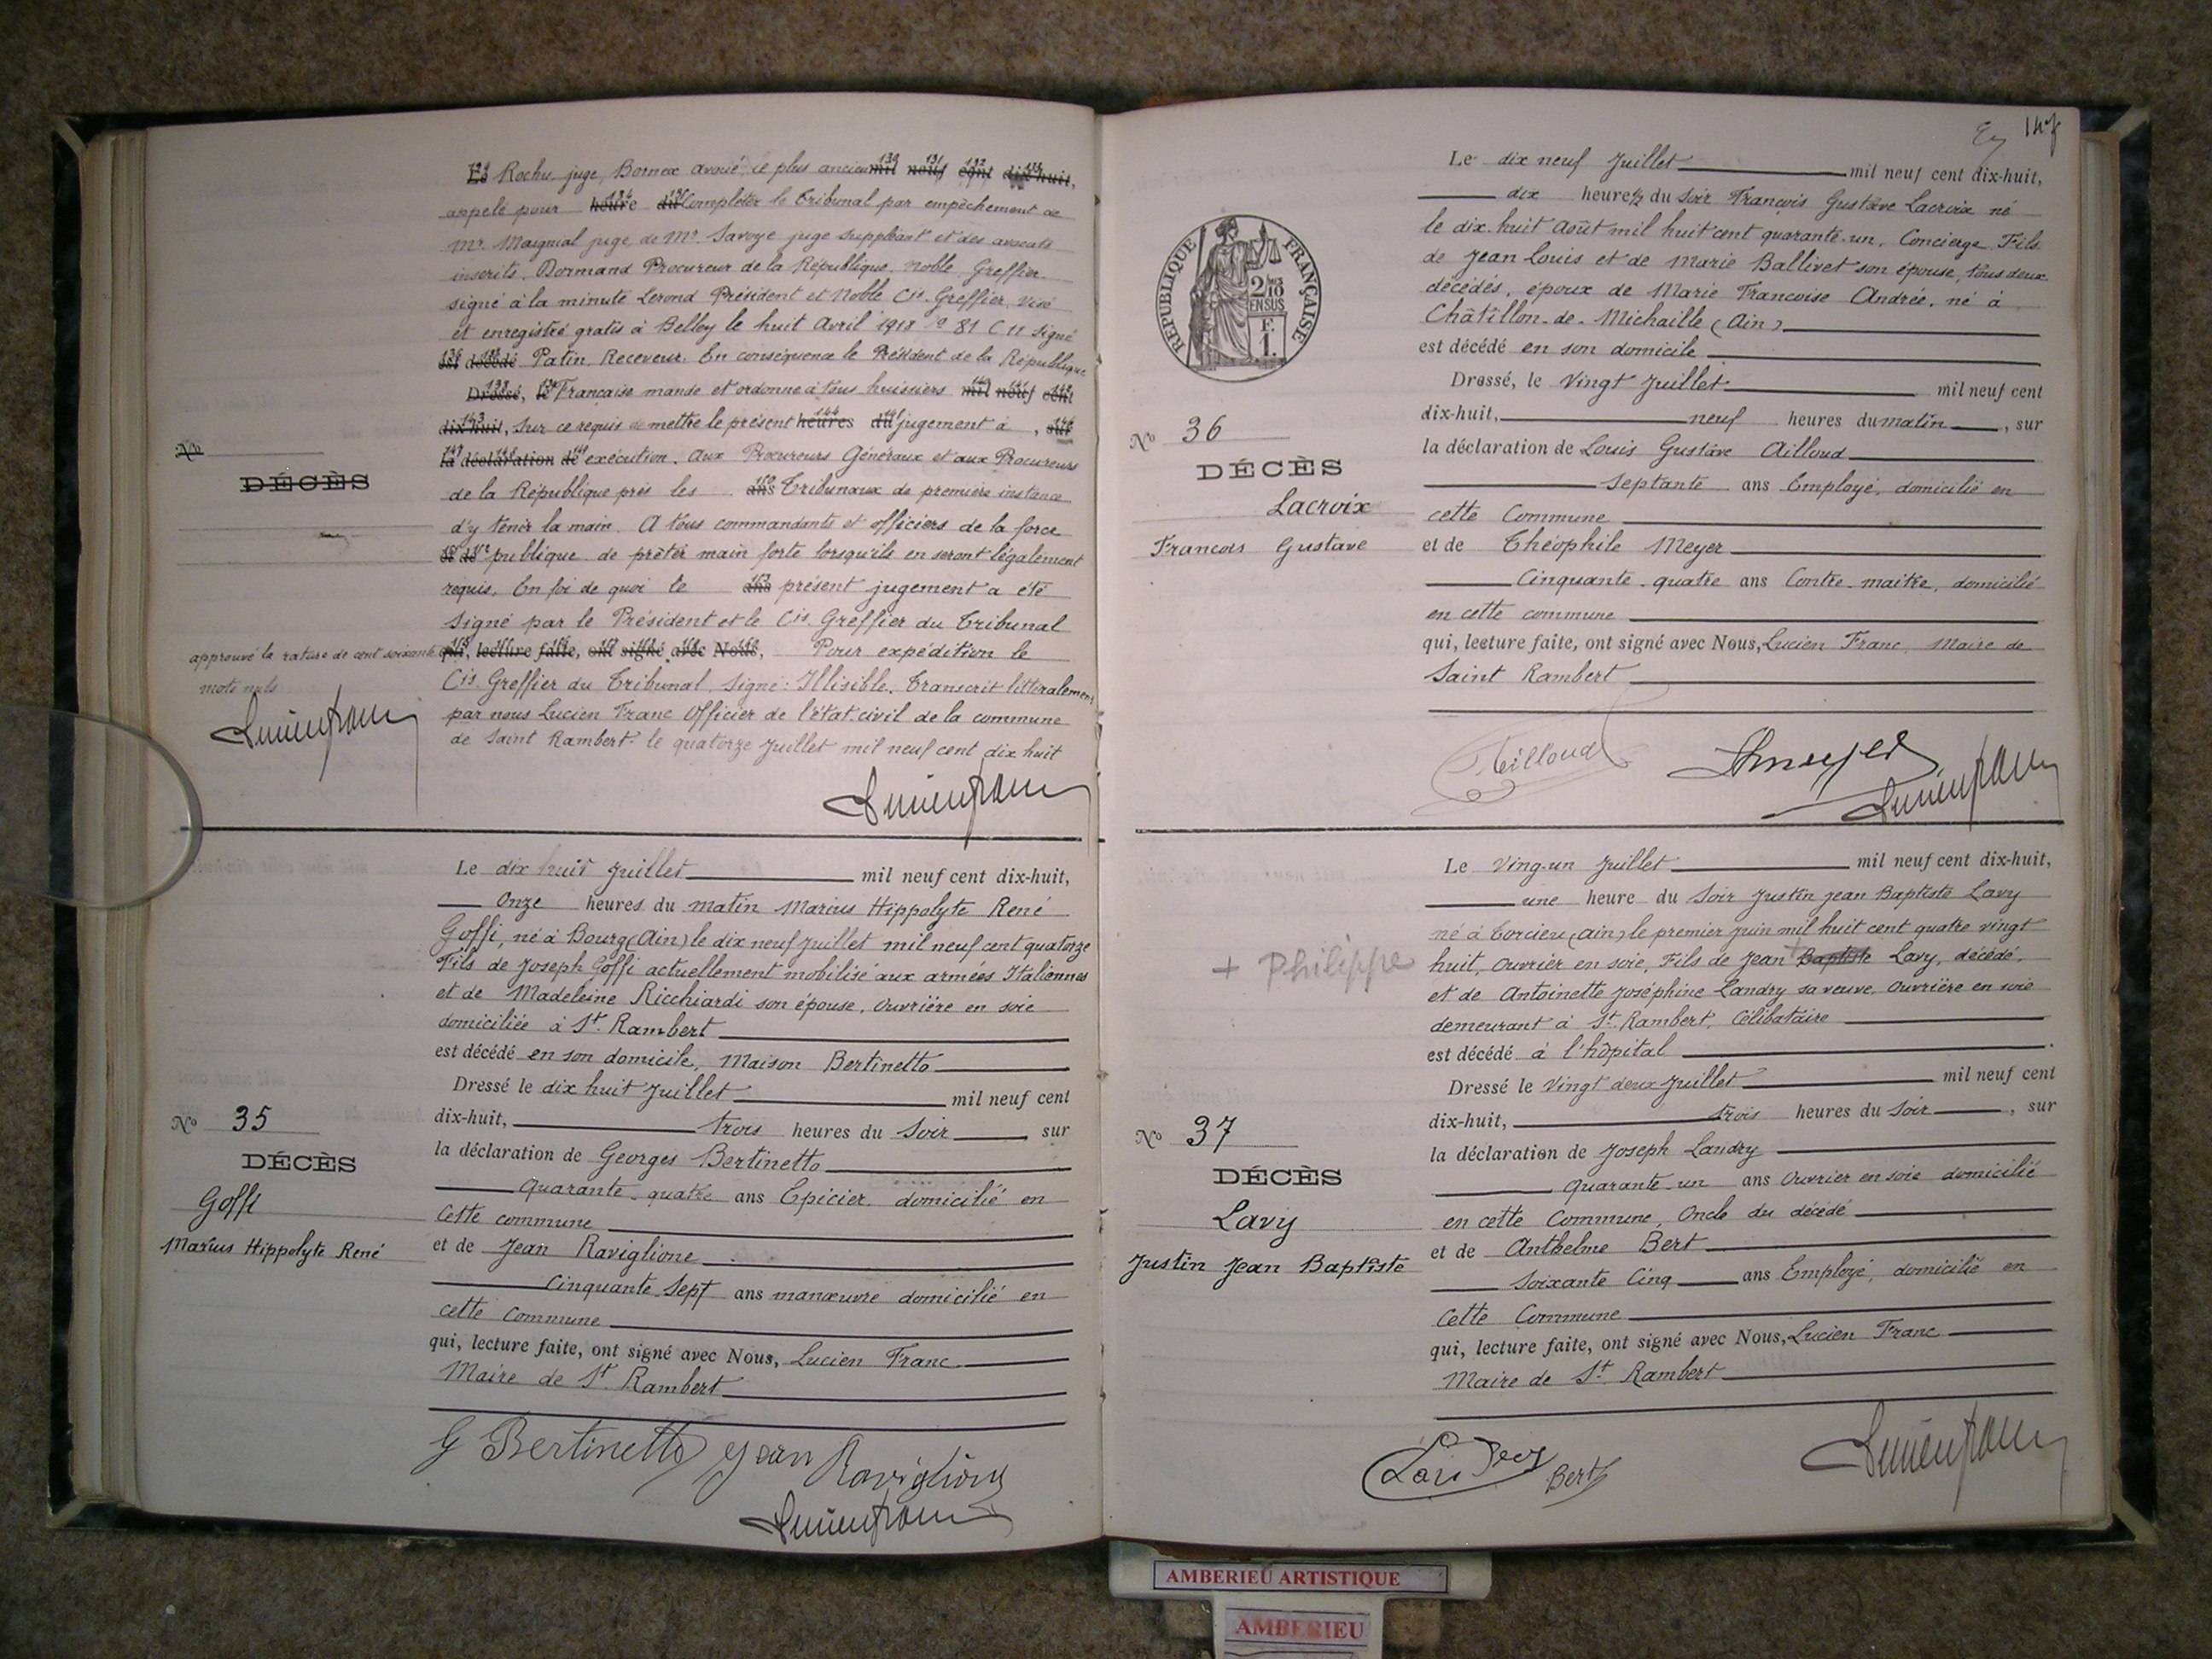 Rochu juge, Bornex avoué le plus ancien mil neuf cent dix-huit,
appelé pour heure du compléter le Tribunal par empêchement de
Mr. Maignial juge, de Mr. Savoye juge suppléant et des avocats
inscrits. Dormand Procureur de la République. Noble, Greffier
signé à la minute Lerond Président et Noble Cis. Greffier. Visé
et enregistré gratis à Belley le huit Avril 1918 81 C 11 signé
est décédé Patin Receveur. En conséquence le Président de la République
Dressé, le Française mande et ordonne à tous huissiers mil neuf cent
dix-huit, sur ce requis de mettre le présent heures du jugement à , sur
la déclaration de exécution. Aux Procureurs Généraux et aux Procureurs
de la République près les ans Tribunaux de première instance
d'y tenir la main. A tous commandants et officiers de la force
et de publique de prêter main forte lorsqu'ils en seront légalement
requis. En foi de quoi le ans présent jugement a été
signé par le Président et le Cis Greffier du Tribunal
qui, lecture faite, ont signé avec Nous, Pour expédition le
Cis Greffier du Tribunal. Signé: Illisible. Transcrit littéralement
par nous Lucien Franc Officier de l'état civil de la commune
de Saint Rambert. le quatorze Juillet mil neuf cent dix huit
No
DÉCÈS
approuvé la rature de cent soixante
mots nuls
Lucien Franc
Lucien Franc
Le dix huit Juillet mil neuf cent dix-huit,
Onze heures du matin Marius Hippolyte René
Goffi, né à Bourg (Ain) le dix neuf Juillet mil neuf cent quatorze
Fils de Joseph Goffi actuellement mobilisé aux armées Italiennes
et de Madeleine Ricchiardi son épouse, ouvrière en soie
domiciliée à St. Rambert
est décédé en son domicile, Maison Bertinetto
Dressé le dix huit Juillet mil neuf cent
dix-huit, trois heures du Soir, sur
la déclaration de Georges Bertinetto
quarante-quatre ans Epicier domicilié en
cette commune
et de Jean Raviglione
Cinquante sept ans manœuvre domicilié en
cette Commune
qui, lecture faite, ont signé avec Nous, Lucien Franc
Maire de St. Rambert
No 35
DÉCÈS
Goffi
Marius Hippolyte René
G Bertinetto Jean Raviglione
Lucien Franc
147
Le dix neuf Juillet mil neuf cent dix-huit,
dix heure ½ du Soir François Gustave Lacroix né
le dix-huit Août mil huit cent quarante-un, Concierge, Fils
de Jean Louis et de Marie Ballivet son épouse, tous deux
décédés, époux de Marie Francoise Andrée, né à
Châtillon-de-Michaille (Ain)
est décédé en son domicile
Dressé, le Vingt Juillet mil neuf cent
dix-huit, neuf heures du matin, sur
la déclaration de Louis Gustave Ailloud
Septante ans Employé, domicilié en
cette Commune
et de Théophile Meyer
Cinquante-quatre ans Contre-maitre, domicilié
en cette commune
qui, lecture faite, ont signé avec Nous, Lucien Franc, Maire de
Saint Rambert
REPUBLIQUE FRANÇAISE
2/10
EN SUS
F.
1.
No 36
DÉCÈS
Lacroix
Francois Gustave
Ailloud
Thmeyer
Lucien Franc
Le Ving-un Juillet mil neuf cent dix-huit,
une heure du Soir Justin Jean Baptiste Lavy
né à Torcieu (Ain) le premier Juin mil huit cent quatre vingt
huit, Ouvrier en soie, Fils de Jean + Baptiste Lavy, décédé,
et de Antoinette Joséphine Landry sa veuve, Ouvrière en soie
demeurant à St. Rambert, Célibataire
est décédé à l'hôpital
Dressé le Vingt deux Juillet mil neuf cent
dix-huit, trois heures du Soir, sur
la déclaration de Joseph Landry
quarante-un ans Ouvrier en soie domicilié
en cette Commune, Oncle du décédé
et de Anthelme Bert
Soixante Cinq ans Employé, domicilié en
cette Commune
qui, lecture faite, ont signé avec Nous, Lucien Franc
Maire de St. Rambert
+ Philippe
No 37
DÉCÈS
Lavy
Justin Jean Baptiste
Bert
Lucien Franc
AMBERIEU ARTISTIQUE
AMBERIEU